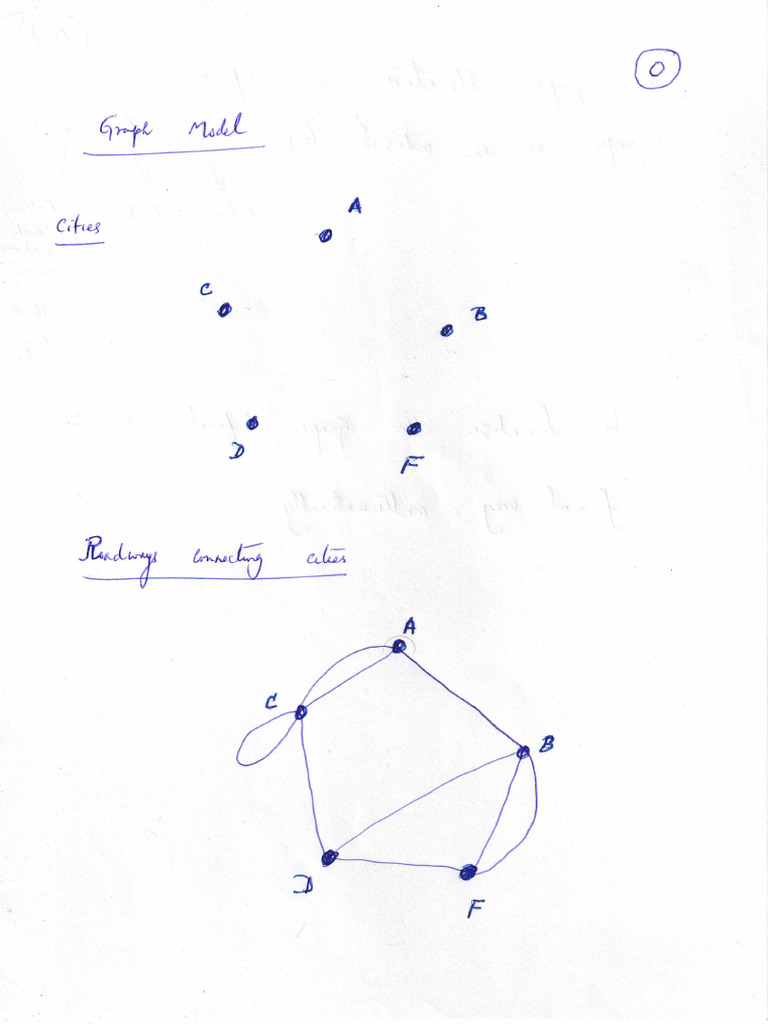 0
Graph Model
Cities
A
C
B
D
F
Roadways connecting cities
A
C
B
D
F